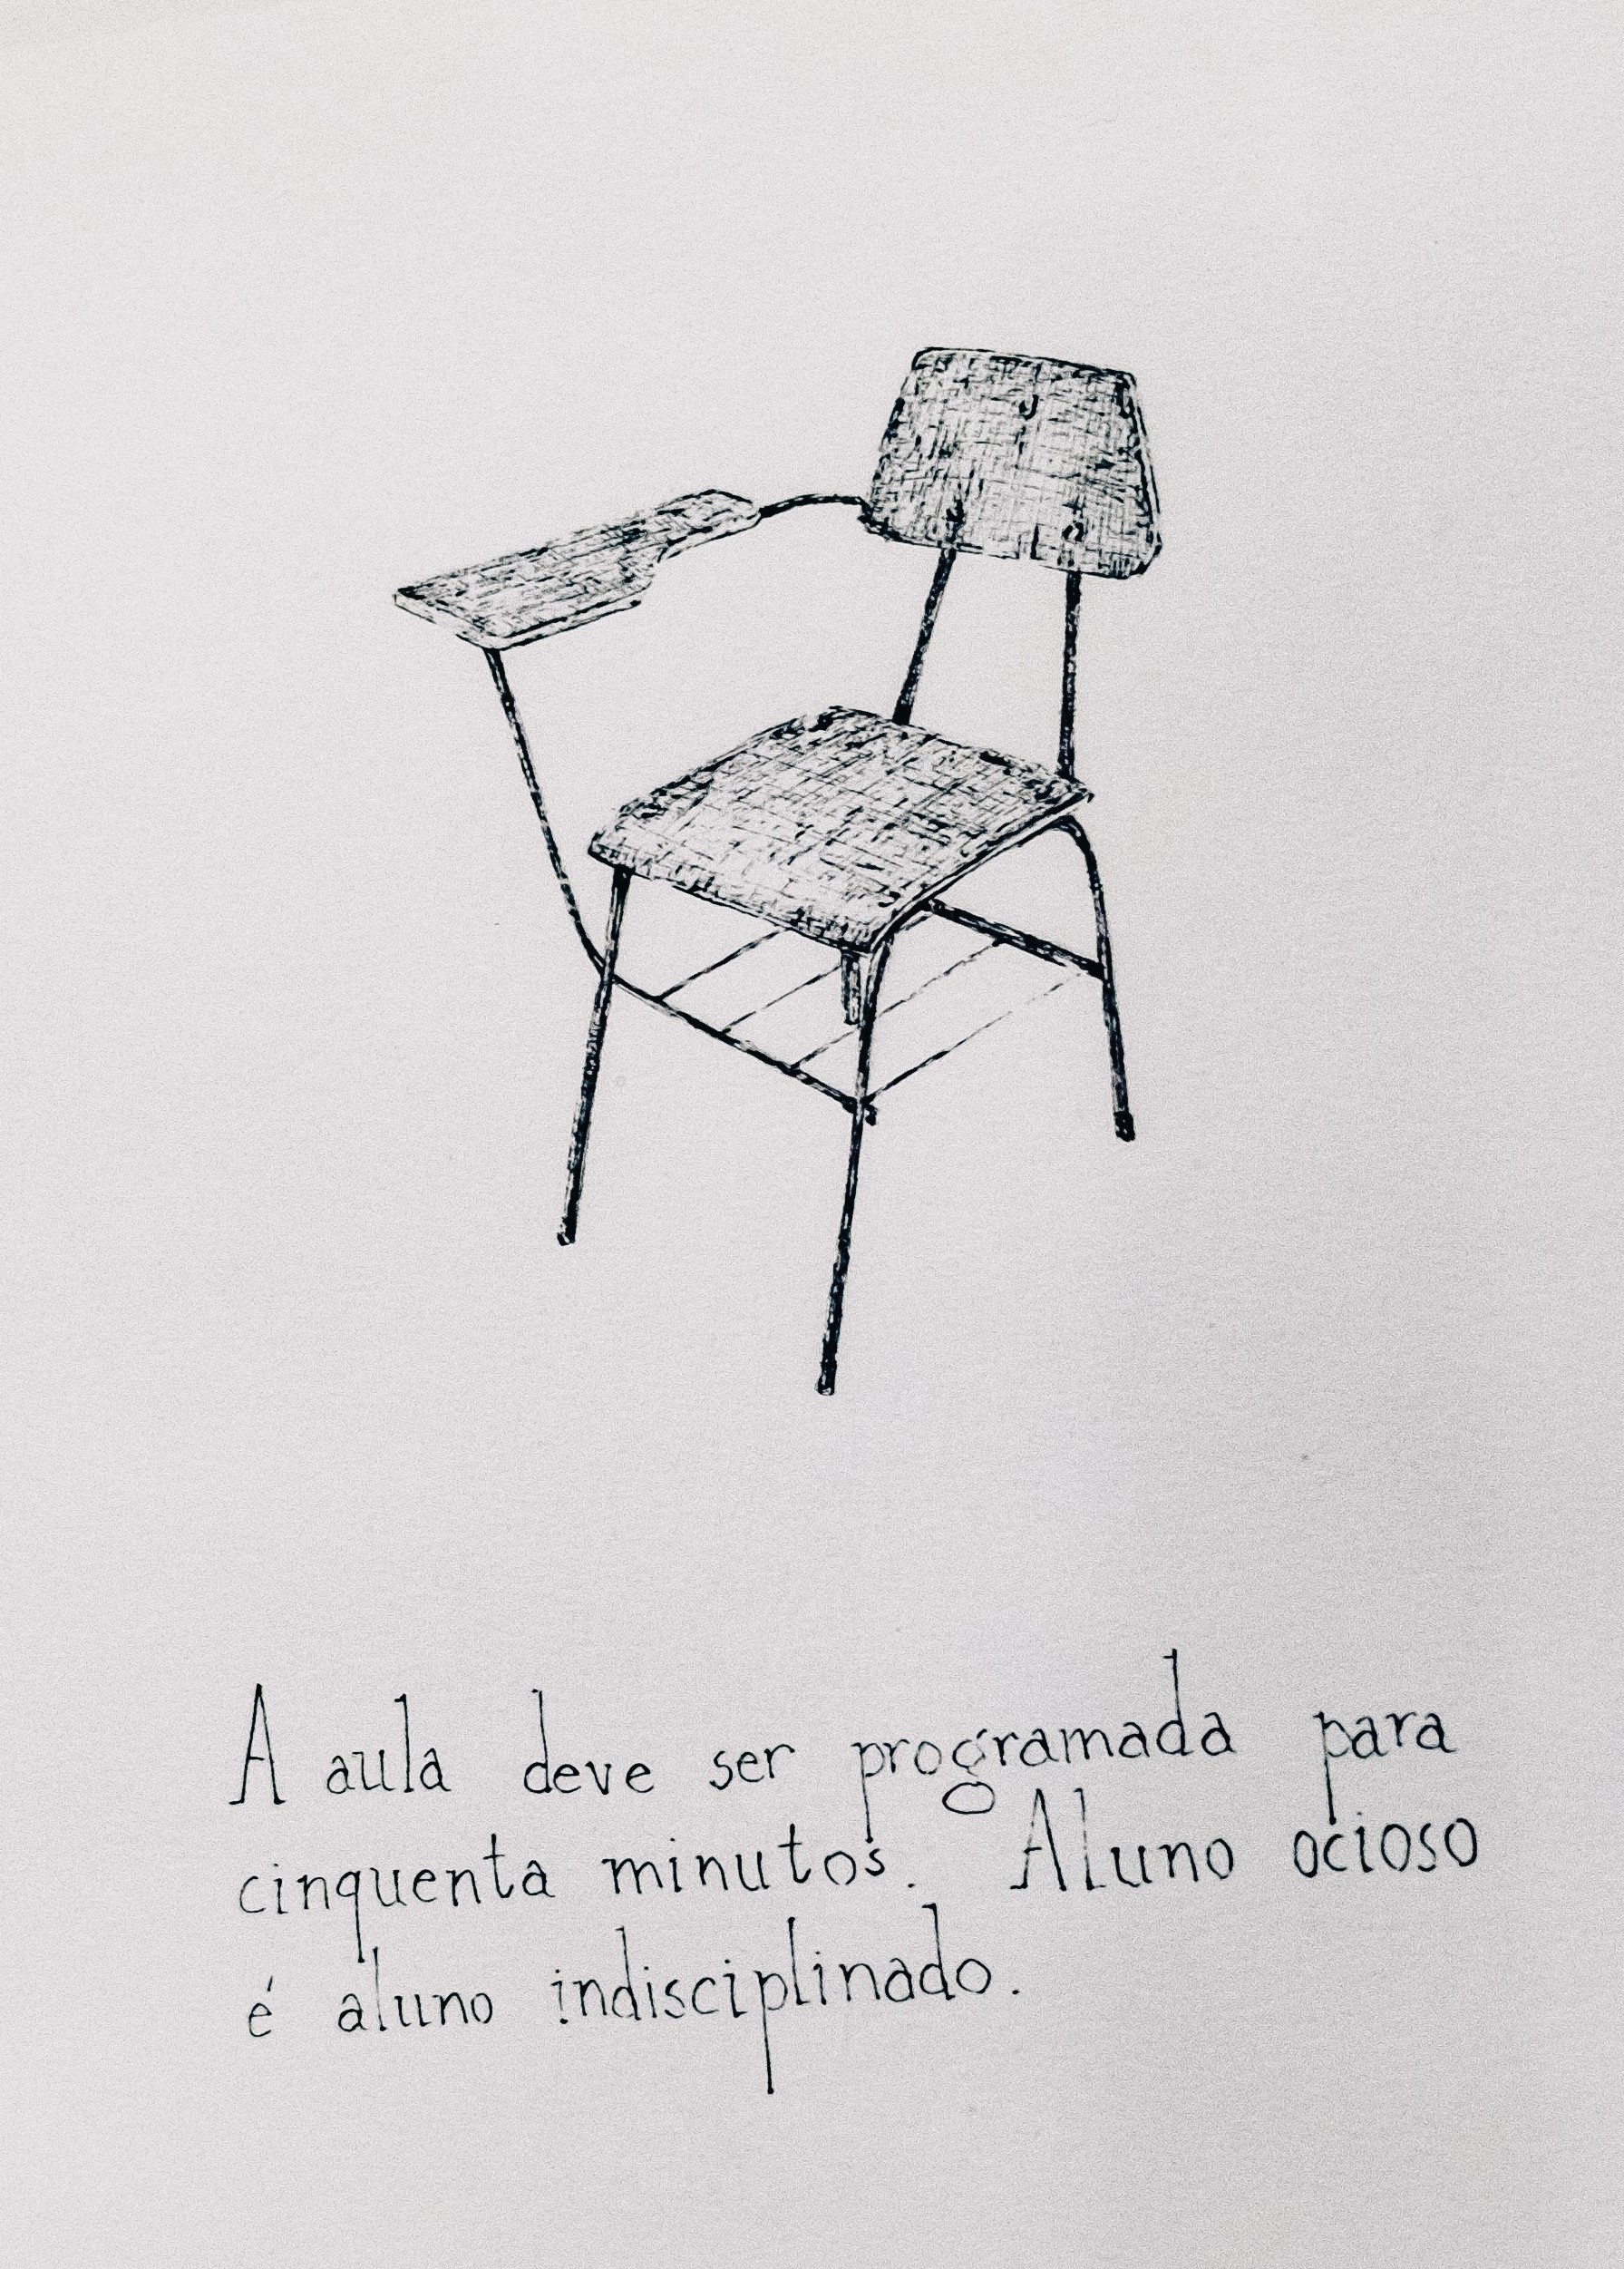 A aula deve ser programada para
cinquenta minutos. Aluno ocioso
é aluno indisciplinado.